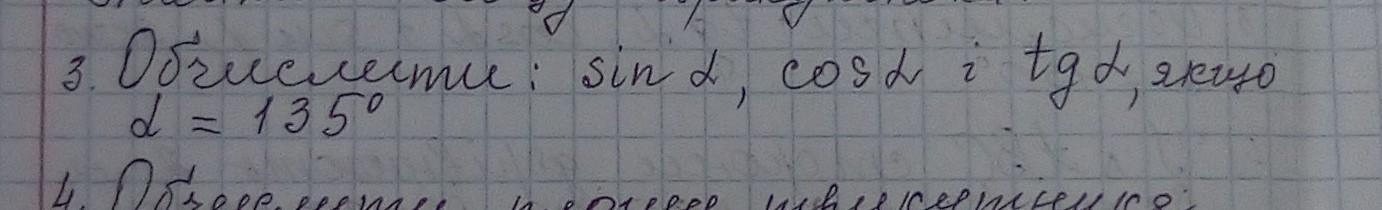 3. Обчислити: sin α, cos α і tg α, якщо
α = 135°
4. Обчислити